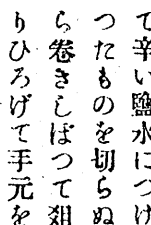 て辛い鹽水につけ
つたものを切らぬ
ら卷きしばつて俎
りひろげて手元を